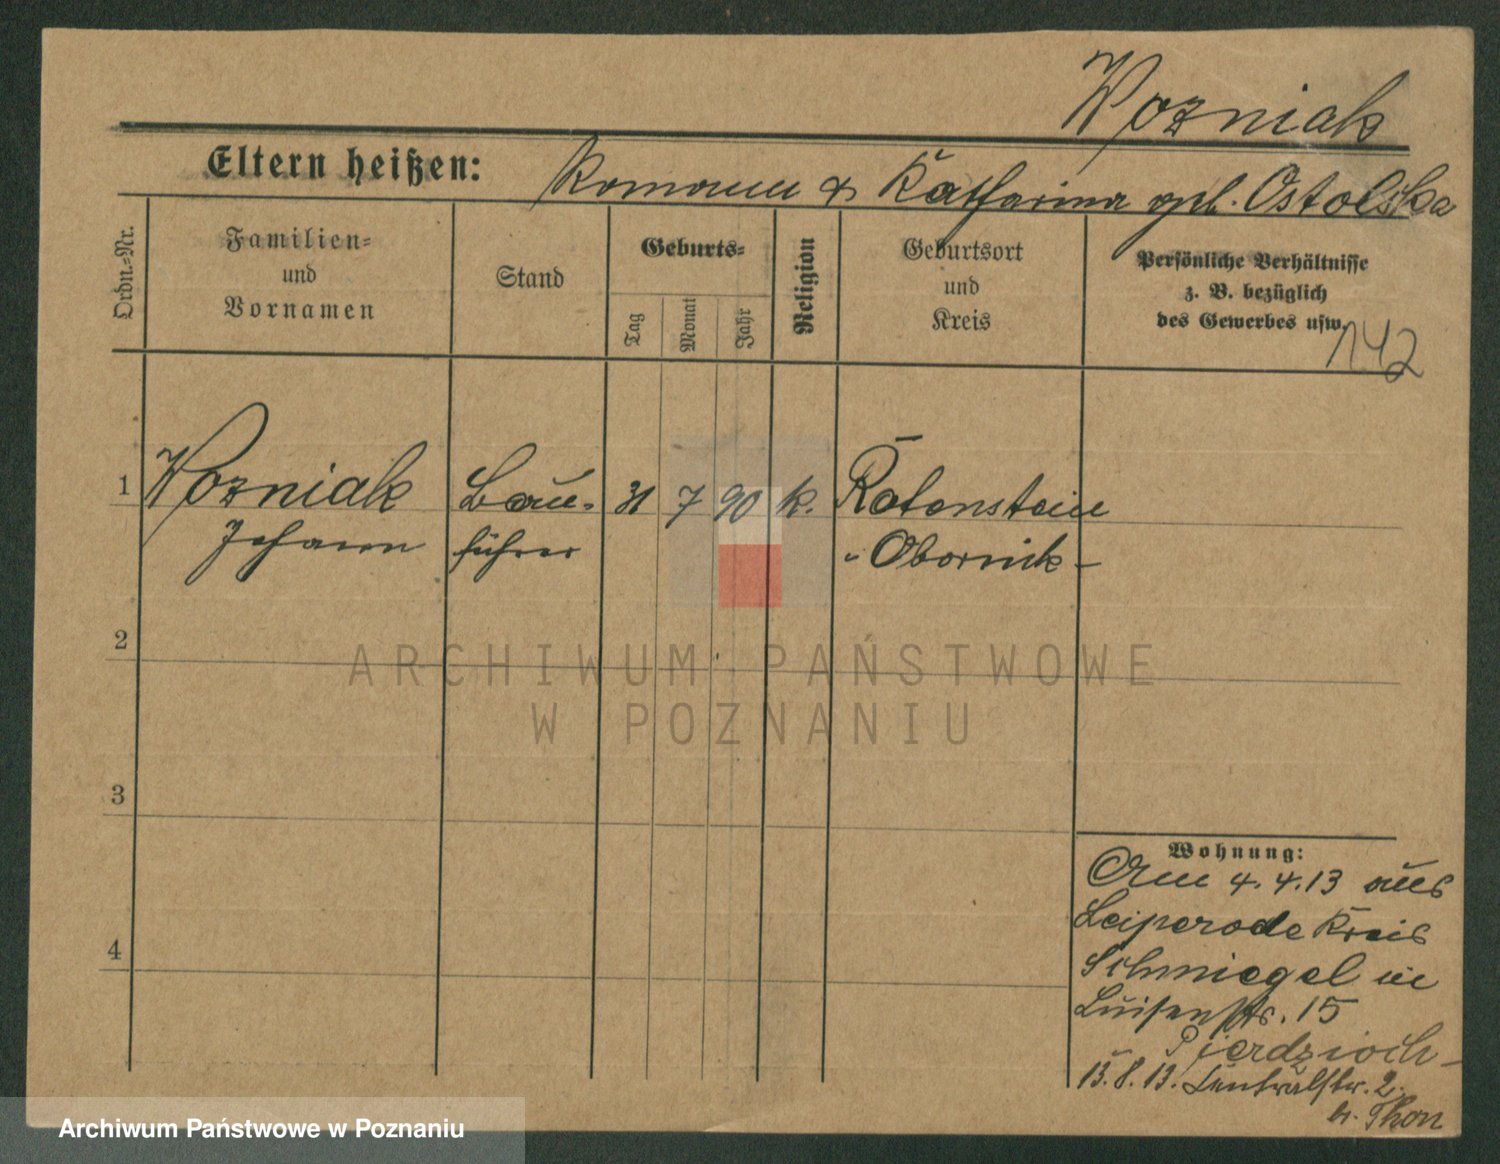 Wozniak
Eltern heißen: Romann & Katharina geb. Ostolska
Ordn.-Nr.
Familien-
und
Vornamen
Stand
Geburts-
Tag
Monat
Jahr
Religion
Geburtsort
und
Kreis
Persönliche Verhältnisse
z. B. bezüglich
des Gewerbes usw.
142
1 Wozniak Bau- 31 7 90 k. Rotenstein
Johann führer Obornik
2
ARCHIWUM PAŃSTWOWE
W POZNANIU
3
4
Wohnung:
Am 4.4.13 aus
Leiperode Kreis
Schmiegel in
Luisenstr. 15
Pierdzioch
15.8.13. Zentralstr. 2.
b. Thon
Archiwum Państwowe w Poznaniu